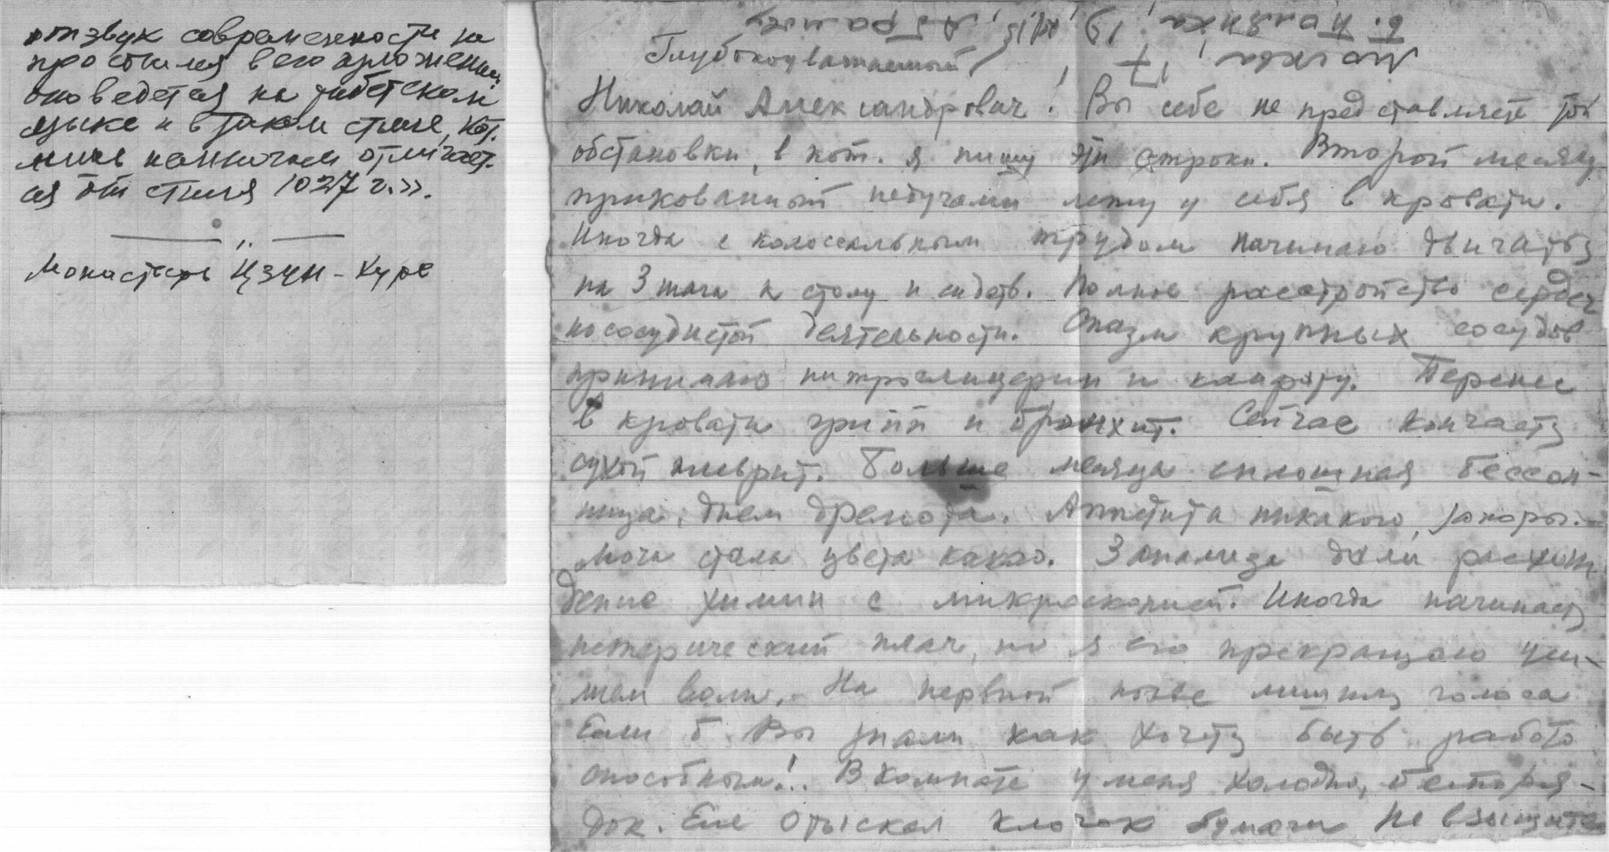 отзвук современности не
простился в его изложении
оно ведется на тибетском
языке и в таком стиле, кот.
лишь немногим отличает-
ся от стиля 1027 г.».
Монастырь Цзун-Хуре
Глубокоуважаемый
Николай Александрович! Вы себе не представляете той
обстановки, в кот. я пишу эти строки. Второй месяц
прикованный недугами лежу у себя в кровати.
Иногда с колоссальным трудом начинаю двигаться
на 3 шага к столу и сидеть. Полное расстройство сердеч
нососудистой деятельности. Спазм крупных сосудов
принимаю нитроглицерин и камфору. Перенес
в кровати грипп и бронхит. Сейчас кончаетъ
сухой плеврит. Больше месяца сплошная бессон-
ница, днем дремота. Аппетита никакого, запоры.
Моча стала цвета какао. 3 анализа дали расхож
дение химии с микроскопией. Иногда начинается
истерический плач, но я его прекращаю уси-
лием воли. На нервной почве лишился голоса
Если б Вы знали как хочется быть работо
способным!.. В комнате у меня холодно, беспоря-
док. Еле отыскал клочок бумаги Не взыщите